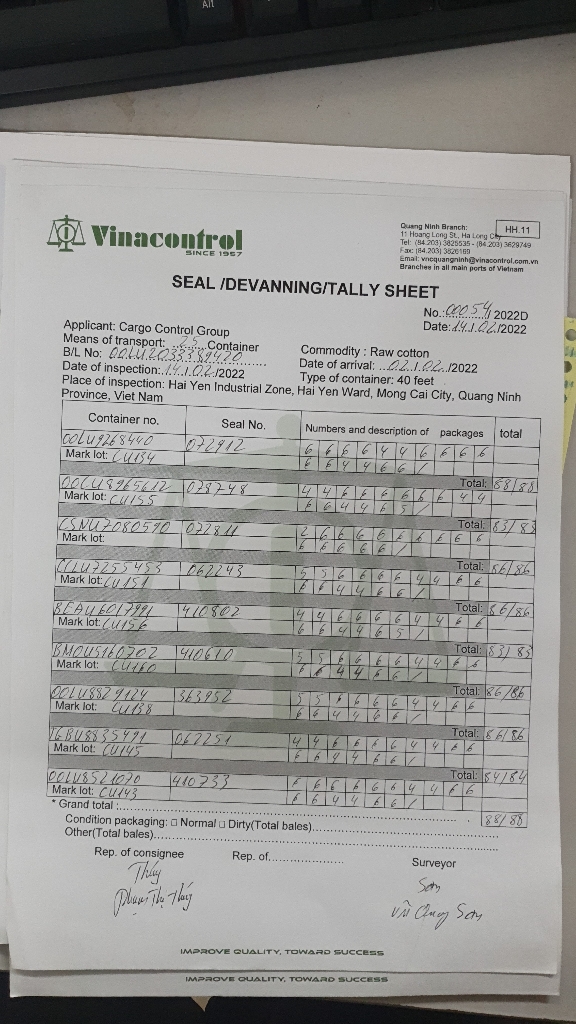 Alt
Vinacontrol
SINCE 1957
Quang Ninh Branch:
11 Hoang Long St., Ha Long City
Tel: (84.203) 3825535 - (84.203) 3629749
Fax: (84.203) 3826169
Email: vncquangninh@vinacontrol.com.vn
Branches in all main ports of Vietnam
HH.11
SEAL /DEVANNING/TALLY SHEET
No.: 00054/2022D
Date: 14/02/2022
Applicant: Cargo Control Group
Means of transport: 25 Container
Commodity : Raw cotton
B/L No: OOLU2033389420
Date of arrival: 02/02/2022
Date of inspection: 14/02/2022
Type of container: 40 feet
Place of inspection: Hai Yen Industrial Zone, Hai Yen Ward, Mong Cai City, Quang Ninh
Province, Viet Nam
Container no. Seal No. Numbers and description of packages total
OOLU9268440 072912 6 6 6 6 4 4 6 6 6 6
Mark lot: CU134 6 6 4 4 6 6 /
Total: 88/88
OOCU8965612 078748 4 4 6 6 6 6 6 6 4 4
Mark lot: CU155 6 6 4 4 6 5 /
Total: 83/83
CSNU7080590 072811 2 6 6 6 6 6 6 6 6 6
Mark lot: 6 6 6 6 6 /
Total: 86/86
CCLU7255453 062243 5 5 6 6 6 6 4 4 6 6
Mark lot: CU151 6 6 4 4 6 6 /
Total: 86/86
BEAU6017991 410802 4 4 6 6 6 6 4 4 6 6
Mark lot: CU156 6 6 4 4 6 5 /
Total: 83/83
BMOU5160702 410610 5 5 6 6 6 6 4 4 6 6
Mark lot: CU160 6 6 4 4 6 6 /
Total: 86/86
OOLU8829124 363952 5 5 6 6 6 6 4 4 6 6
Mark lot: CU138 6 6 4 4 6 6 /
Total: 86/86
TGBU8835491 067251 4 4 6 6 6 6 4 4 6 6
Mark lot: CU145 6 6 4 4 6 6 /
Total: 84/84
OOLU8521070 410733 6 6 6 6 6 6 4 4 6 6
Mark lot: CU143 6 6 4 4 6 6 /
88/88
* Grand total :
Condition packaging: □ Normal □ Dirty(Total bales)
Other(Total bales)
Rep. of consignee Rep. of Surveyor
Thúy Sơn
Phạm Thị Thúy Vũ Quang Sơn
IMPROVE QUALITY, TOWARD SUCCESS
IMPROVE QUALITY, TOWARD SUCCESS